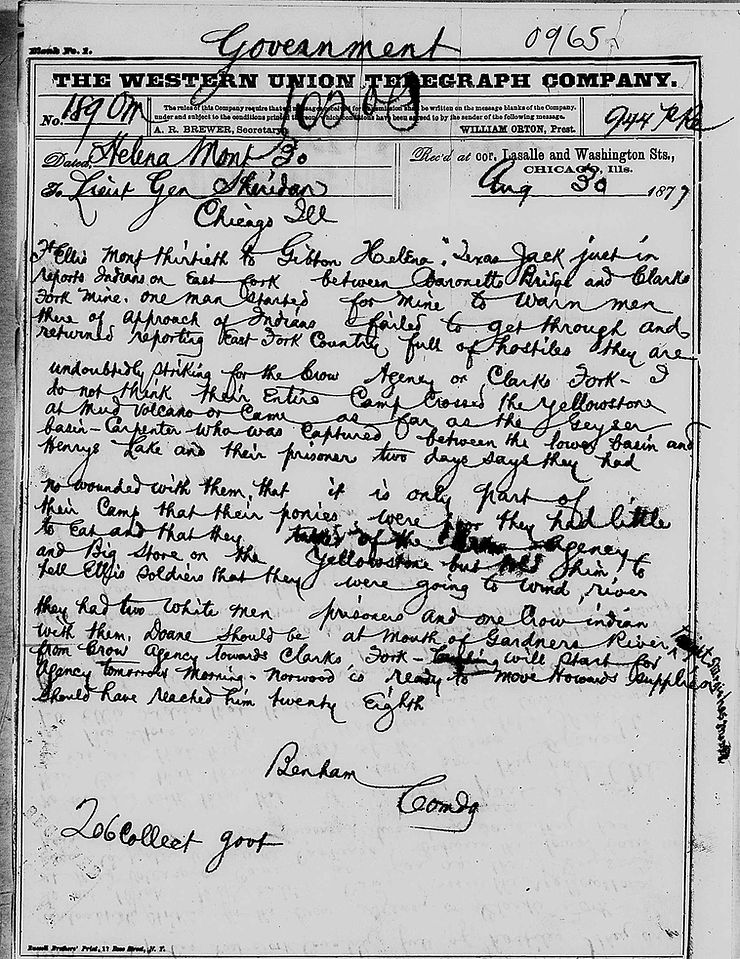 Blank No. 1.
Government 0965
THE WESTERN UNION TELEGRAPH COMPANY.
No. 189 Om
The rules of this Company require that all messages for shall be written on the message blanks of the Company,
under and subject to the conditions printed which conditions have been agreed to by the sender of the following message.
A. R. BREWER, Secretary. WILLIAM ORTON, Prest.
944
Dated, Helena Mont 30
Rec'd at cor. Lasalle and Washington Sts.,
CHICAGO, Ills.
To Lieut Gen Sheridan
Aug 30 1877
Chicago Ill
Ft Ellis Mont thirtieth to Gibbon Helena "Texas Jack just in
reports Indians on East fork between Baronetts Bridge and Clarks
Fork Mine. one man started for mine to warn men
there of approach of Indians failed to get through and
returned reporting East Fork Country full of hostiles they are
undoubtedly striking for the Crow Agency or Clarks Fork - I
do not think their Entire Camp crossed the Yellowstone
at Mud Volcano or Came as far as the Geyser
basin - Carpenter who was captured between the lower basin and
Henrys Lake and their prisoner two days says they had
no wounded with them, that it is only part of
their Camp that their ponies were poor they had little
to Eat and that they of the Agency
and Big Store on the Yellowstone but told him to
tell Ellis Soldiers that they were going to wind river
they had two white men prisoners and one Crow indian
with them. Doane should be at Mouth of Gardners River
from Crow Agency towards Clarks Fork - will start for
Agency tomorrow Morning - Norwood is ready to move towards supplies
should have reached him twenty Eighth
Benham
Comdg
206 collect govt
Russell Brothers' Print, 17 Rose Street, N. Y.